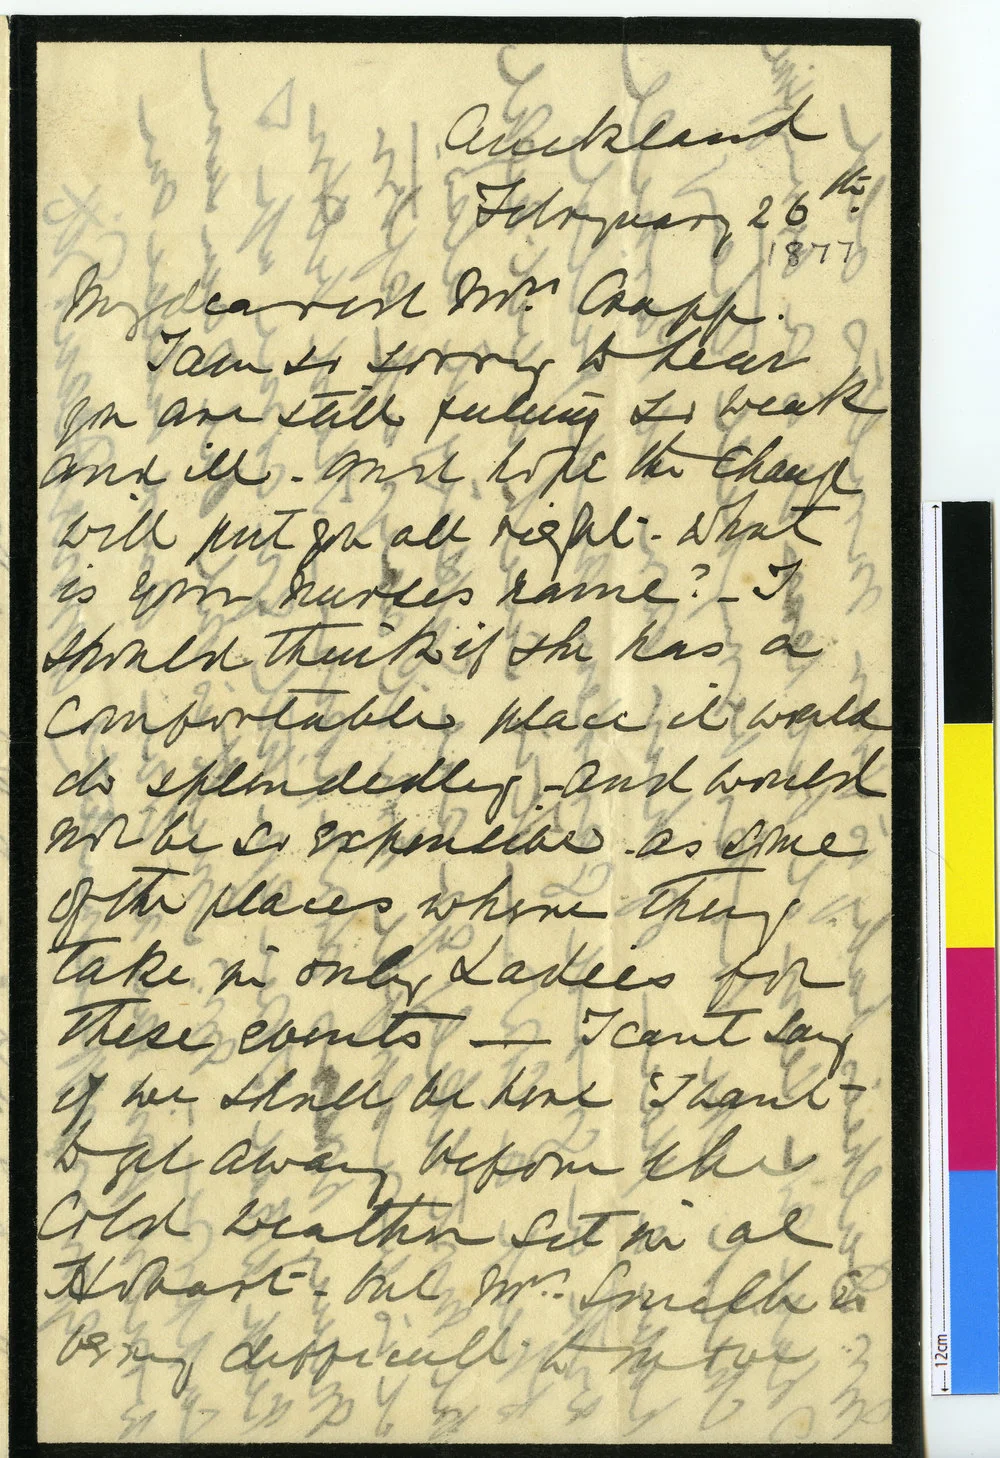 Auckland
February 26th
1877
My dearest Mrs. Crapp.
I am so sorry to hear
you are still feeling so weak
and ill - and hope the change
will put you all right - What
is your nurses name? - I
should think if she has a
comfortable place it would
do splendedley - and would
not be so expensive as some
of the places where they
take in only Ladies for
these events — I cant say
if we shall be here I want
to get away before the
cold weather set in at
Hobart - but Mrs. Smith is
very difficult to move
12cm